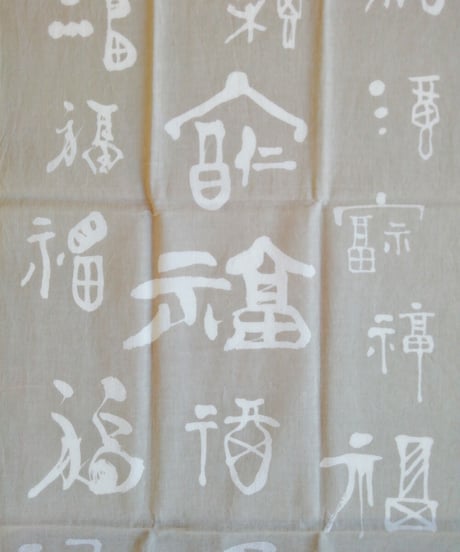 福福福福
福福福
福福福福